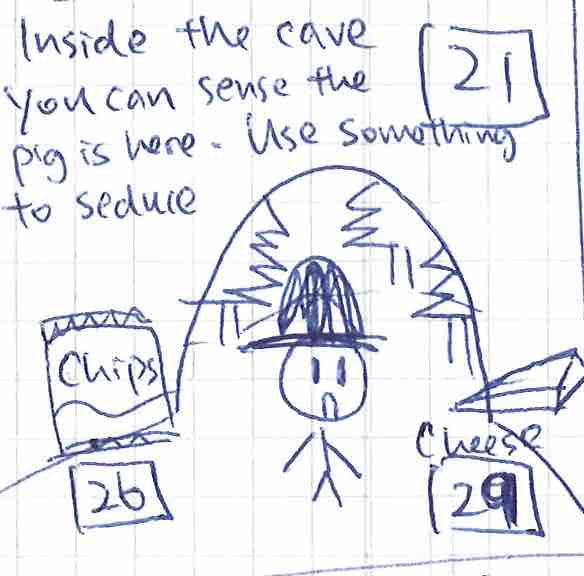 Inside the cave
21
you can sense the
pig is here. Use something
to seduce
Chips
Cheese
26
29